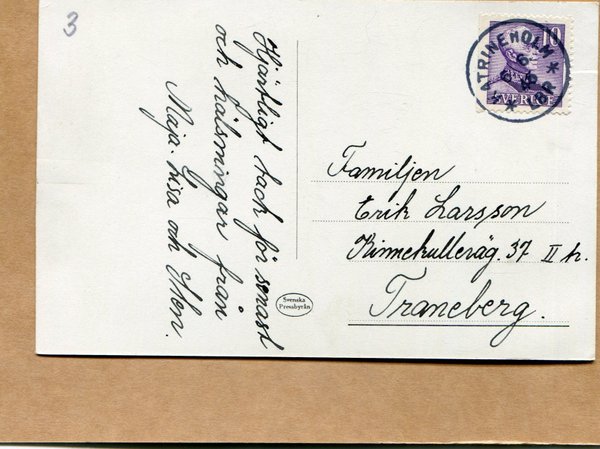 3
Hjärtligt tack för senast
och hälsningar från
Maja. Lisa och Sten.
Familjen
Erik Larsson
Kinnekulleväg. 37 II h.
Traneberg.
Svenska
Pressbyrån
10
SVERIGE
KATRINEHOLM * LBR *